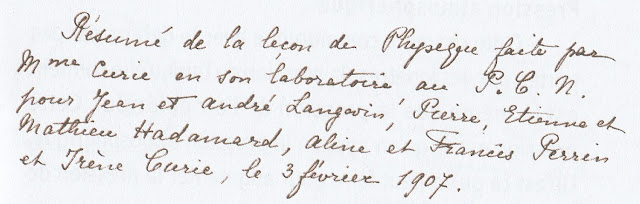 Résumé de la leçon de Physique faite par
Mme Curie en son laboratoire au P. C. N.
pour Jean et André Langevin, Pierre, Etienne et
Mathieu Hadamard, Aline et Francis Perrin
et Irène Curie, le 3 février 1907.